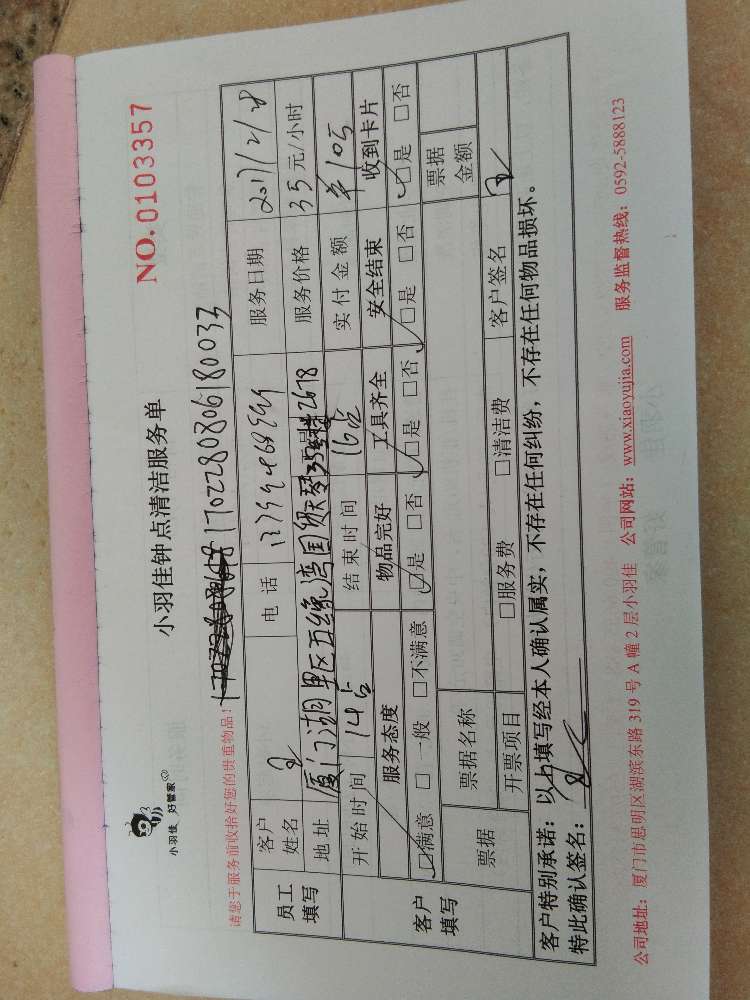 小羽佳 好管家
小羽佳钟点清洁服务单
NO. 0103357
请您于服务前收拾好您的贵重物品！
1702280806180033
员工填写
客户姓名
电话
服务日期 2017/2/28
地址 厦门湖里区五缘湾国
2678
服务价格 35元/小时
客户填写
开始时间 14点
结束时间 16点
实付金额 ¥105
服务态度
物品完好
工具齐全
安全结束
收到卡片
□满意 □一般 □不满意
□是 □否
□是 □否
□是 □否
□是 □否
票据
票据名称
票据金额
开票项目
□服务费
□清洁费
客户签名
客户特别承诺：以上填写经本人确认属实，不存在任何纠纷，不存在任何物品损坏。
特此确认签名：
公司地址：厦门市思明区湖滨东路 319 号 A 幢 2 层小羽佳 公司网站：www.xiaoyujia.com 服务监督热线：0592-5888123